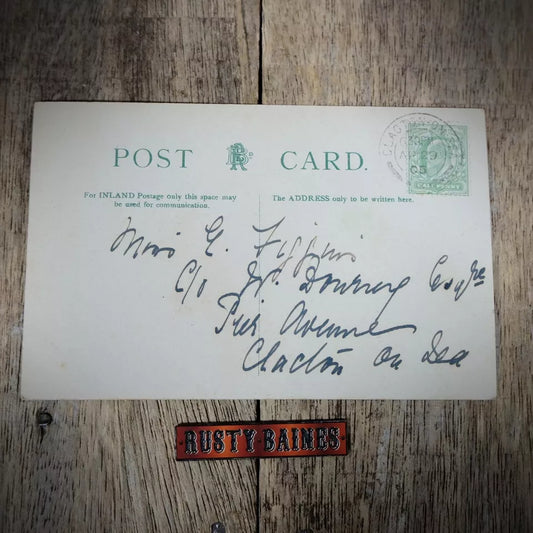 POST CARD.
For INLAND Postage only this space may
be used for communication.
The ADDRESS only to be written here.
HALF PENNY
Miss G. Figgins
C/o Mr. Downey Esqre
Pier Avenue
Clacton on Sea
RUSTY BAINES